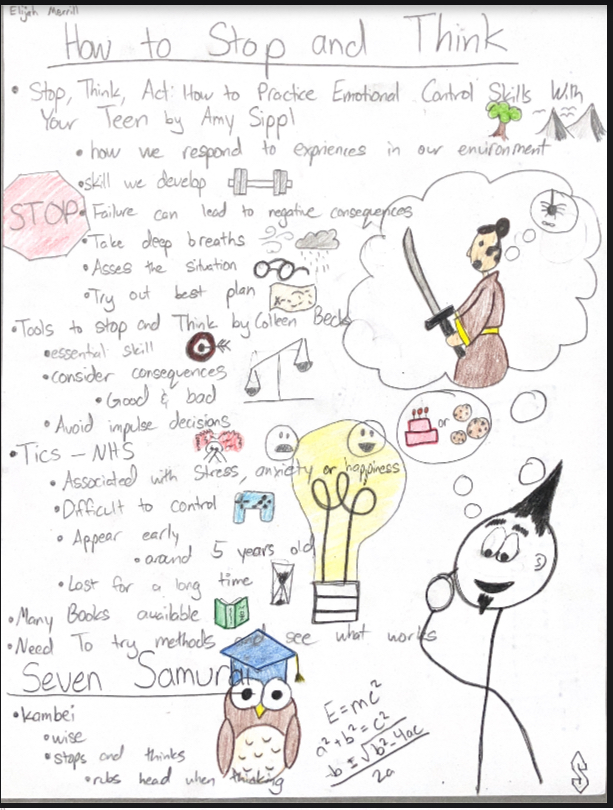 Elijah Merrill
How to Stop and Think
• Stop, Think, Act: How to Practice Emotional Control Skills With
Your Teen by Amy Sippl
• how we respond to expriences in our environment
• skill we develop
STOP
• Failure can lead to negative consequences
• Take deep breaths
• Asses the situation
• Try out best plan
• Tools to stop and Think by Colleen Beck
• essential skill
• consider consequences
• Good & bad
• Avoid impulse decisions
or
• Tics - NHS
• Associated with stress, anxiety or happiness
• Difficult to control
• Appear early
• around 5 years old
• Last for a long time
• Many Books available
• Need To try methods and see what works
Seven Samurai
• Kambei
• wise
• stops and thinks
• rubs head when thinking
E=mc²
a²+b²=c²
b±√b²-4ac
2a